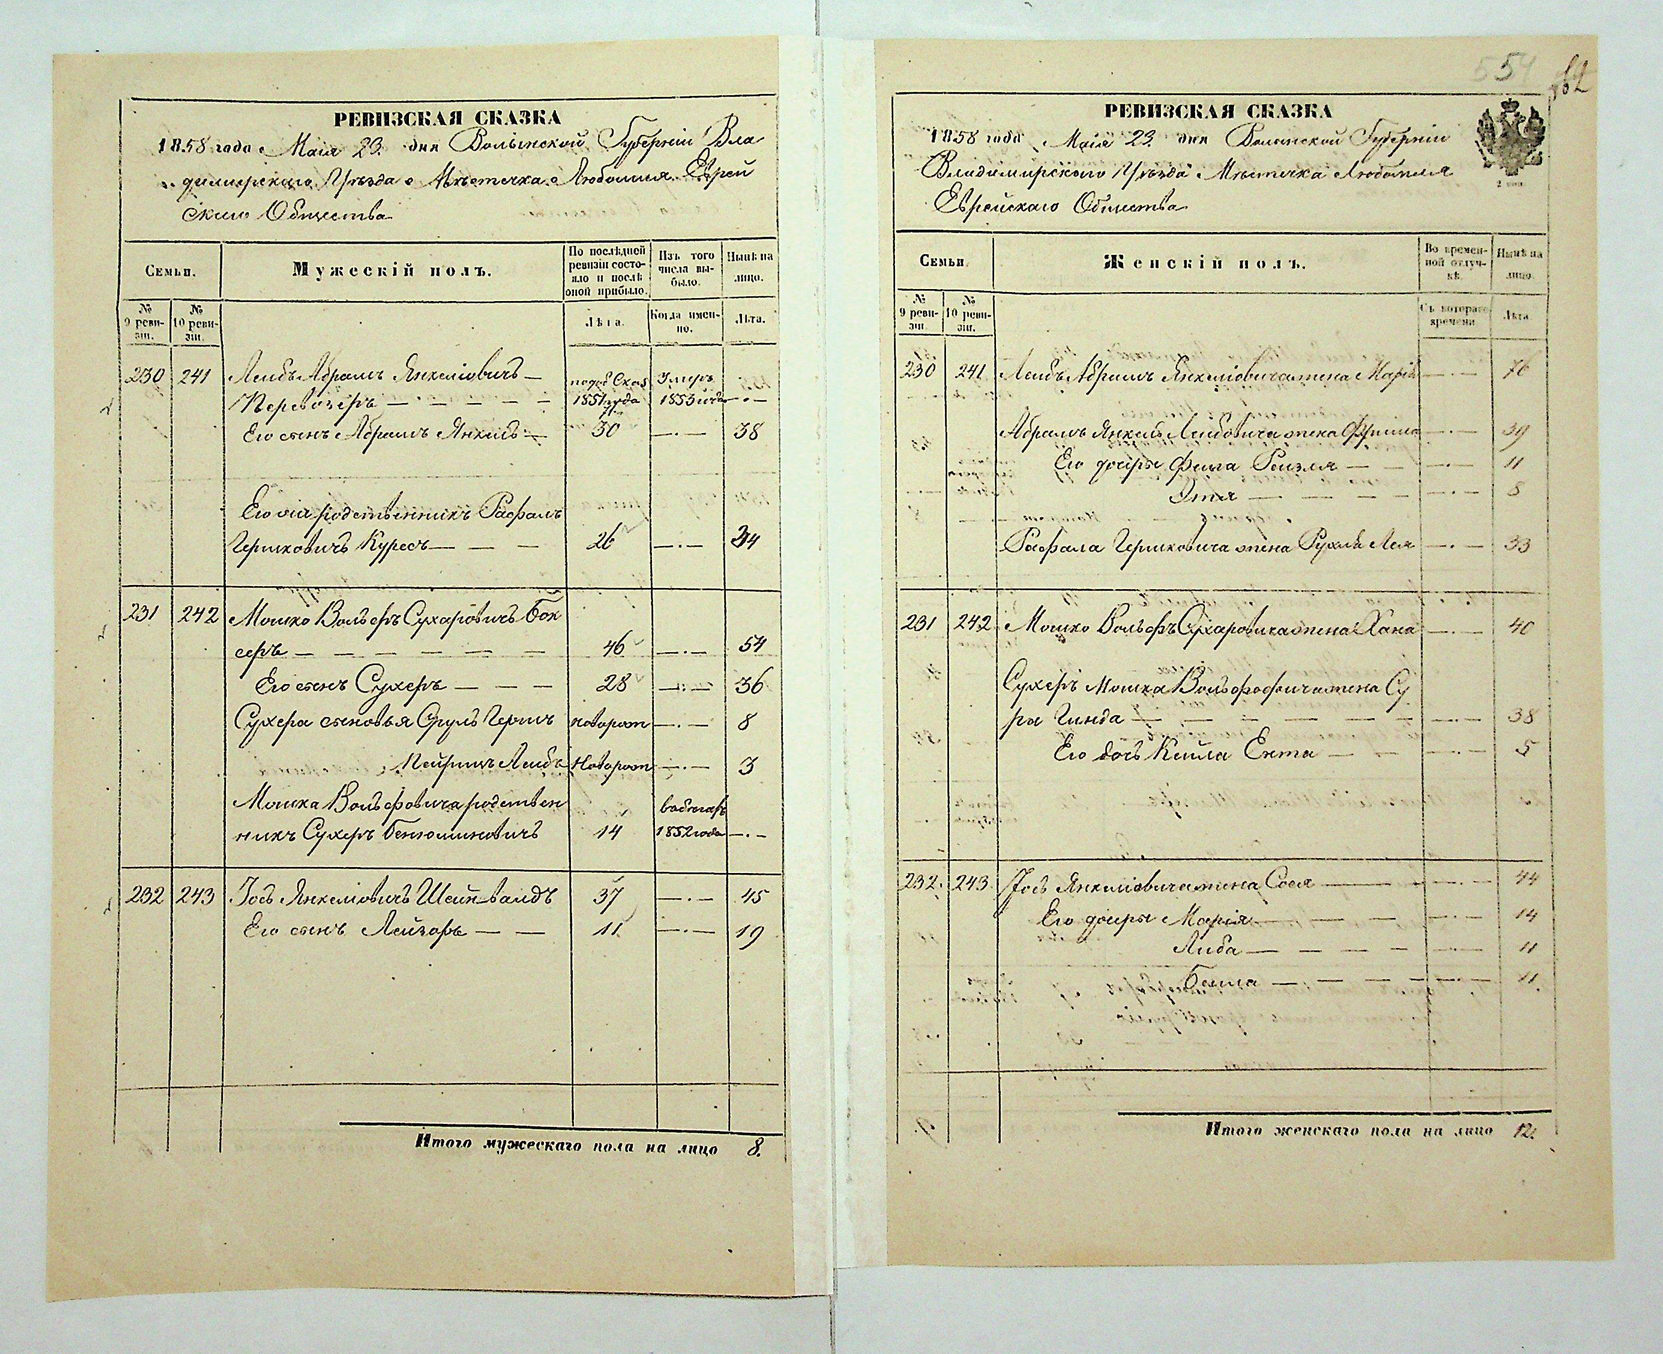 РЕВИЗСКАЯ СКАЗКА
1858 года Маія 23. дня Волынской Губерніи Вла
димирскаго Уѣзда Мѣстечка Любомля Еврей
скаго Общества
Семьи.
Мужескій полъ.
По послѣдней ревизіи состояло и послѣ оной прибыло.
Изъ того числа выбыло.
Нынѣ на лицо.
№ 9 ревизіи.
№ 10 ревизіи.
Лѣта.
Когда именно.
Лѣта.
230 241 Лейбъ Абрамъ Янкеліовичъ — Умеръ
Перевозеръ — — — — — 1851 года 1853 года — · —
Его сынъ Абрамъ Янкель — 30 — · — 38
Его же родственникъ Рафалъ
Гершковичъ Куресъ — — — 26 — · — 34
231 242 Мошко Вольфъ Сухаровичъ Бок
серъ — — — — — — 46 — · — 54
Его сынъ Сухеръ — — — 28 — · — 36
Сухера сыновья Сруль Гершъ новорож — · — 8
Лейбъ новорож — · — 3
Мошка Вольфовича родствен
никъ Сухеръ Бенюминовичъ 14 1852 года — · —
232 243 Іось Янкеліовичъ Шейнвальдъ 37 — · — 45
Его сынъ Лейзоръ — — 11 — · — 19
Итого мужескаго пола на лицо 8.
554
62
РЕВИЗСКАЯ СКАЗКА
1858 года Маія 23. дня Волынской Губерніи
Владимирскаго Уѣзда Мѣстечка Любомля
Еврейскаго Общества
Семьи
Женскій полъ.
Во временной отлучкѣ.
Нынѣ на лицо.
№ 9 ревизіи.
№ 10 ревизіи.
Съ котораго времени
Лѣта
230 241 Лейбъ Абрамъ Янкеліовича жена Марія — · — 76
Абрамъ Янкель Лейбовича жена Фрима — · — 39
Его дочери Фейга Рейзля — — · — 11
Этя — — — — — · — 8
Рафала Гершковича жена Рухля Лея — · — 33
231 242 Мошко Вольфъ Сухаровича жена Хана — · — 40
Сухеръ Мошка Вольфовича жена Су
ра Гинда — — — — — — — · — 38
Его дочь Кейла Ента — — — · — 5
232. 243. Іось Янкеліовича жена Сося — — · — 44
Его дочери Марія — — — — · — 14
Либа — — — — — · — 11
Бейла — — — — — · — 11.
Итого женскаго пола на лицо 12.